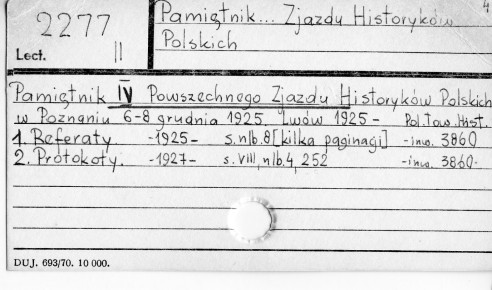 2277
Lect. II
Pamiętnik... Zjazdu Historyków 4
Polskich
Pamiętnik IV Powszechnego Zjazdu Historyków Polskich
w Poznaniu 6-8 grudnia 1925. Lwów 1925 - Pol. Tow. Hist.
1. Referaty. -1925- s. nlb. 8 [kilka paginacji] -inw. 3860
2. Protokoły. -1927- s. VIII, nlb. 4, 252 -inw. 3860-
DUJ. 693/70. 10 000.